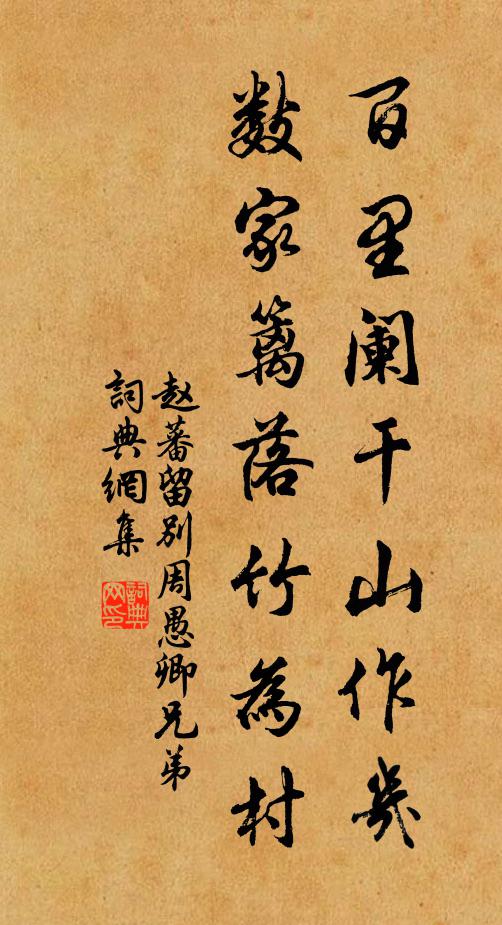 百里阑干山作几
数家篱落竹為村
赵蕃留别周愚卿兄弟
詞典網集
詞典网印